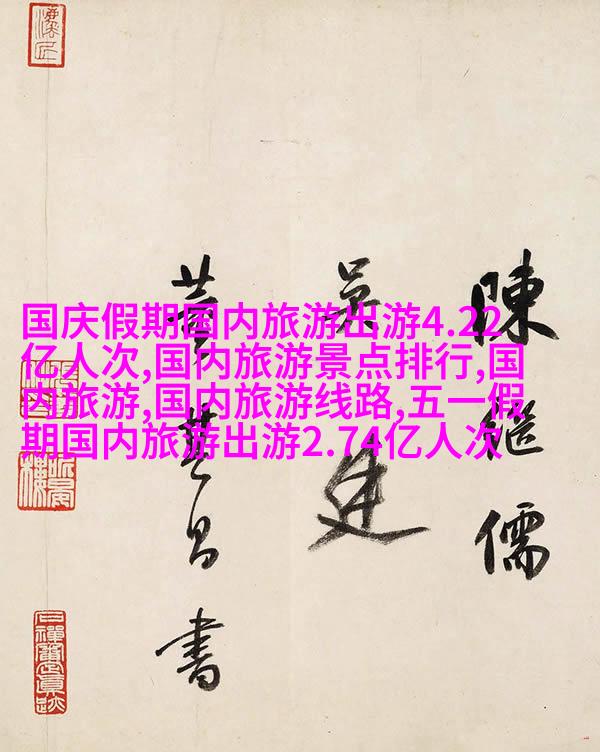 国庆假期国内旅游出游4.22
亿人次,国内旅游景点排行,国
内旅游,国内旅游线路,五一假
期国内旅游出游2.74亿人次
陳繼儒
吳廷
董其昌書